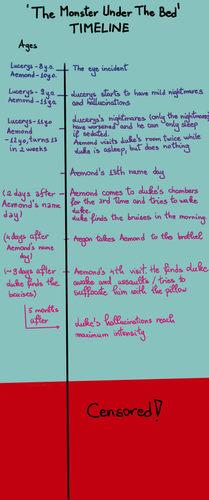 'The Monster Under The Bed'
TIMELINE
Ages
Lucerys - 8 y.o.
Aemond - 10 y.o.
The eye incident
Lucerys - 9 y.o.
Aemond - 11 y.o.
Lucerys starts to have mild nightmares
and hallucinations
Lucerys - 11 y.o.
Aemond
- 12 y.o, turns 13
in 2 weeks
Lucerys's nightmares (only the nightmares)
have worsened and he can only sleep
if sedated.
Aemond visits Luke's room twice while
Luke is asleep, but does nothing
Aemond's 13th name day
(2 days after
Aemond's name
day)
Aemond comes to Luke's chambers
for the 3rd time and tries to wake
Luke.
Luke finds the bruises in the morning.
(4 days after
Aemond's name
day)
Aegon takes Aemond to the brothel
days after
Luke finds the
bruises)
Aemond's 4th visit. He finds Luke
awake and assaults / tries to
suffocate him with the pillow
5 months
after
Luke's hallucinations reach
maximum intensity
Censored!